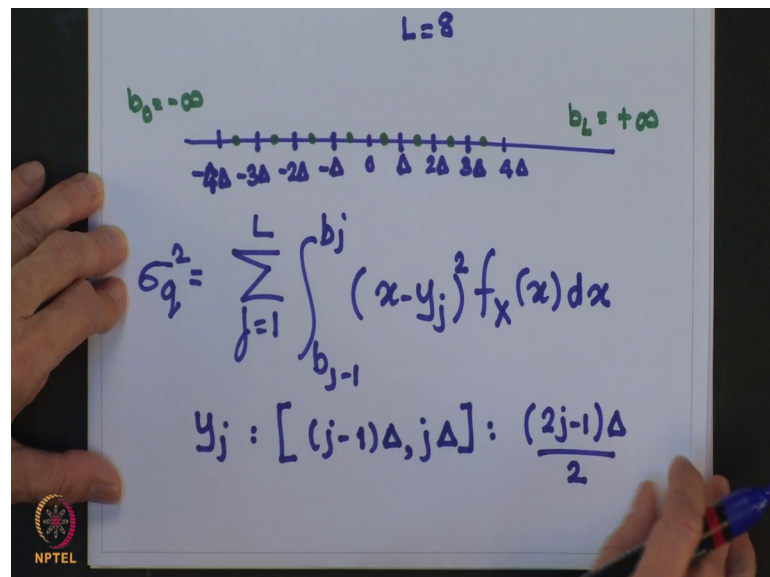 L=8
b₀=-∞ b_L=+∞
-4Δ -3Δ -2Δ -Δ 0 Δ 2Δ 3Δ 4Δ
σ_q² = Σ_{j=1}^{L} ∫_{b_{j-1}}^{b_j} (x-y_j)² f_X(x)dx
y_j : [(j-1)Δ, jΔ] : (2j-1)Δ/2
NPTEL